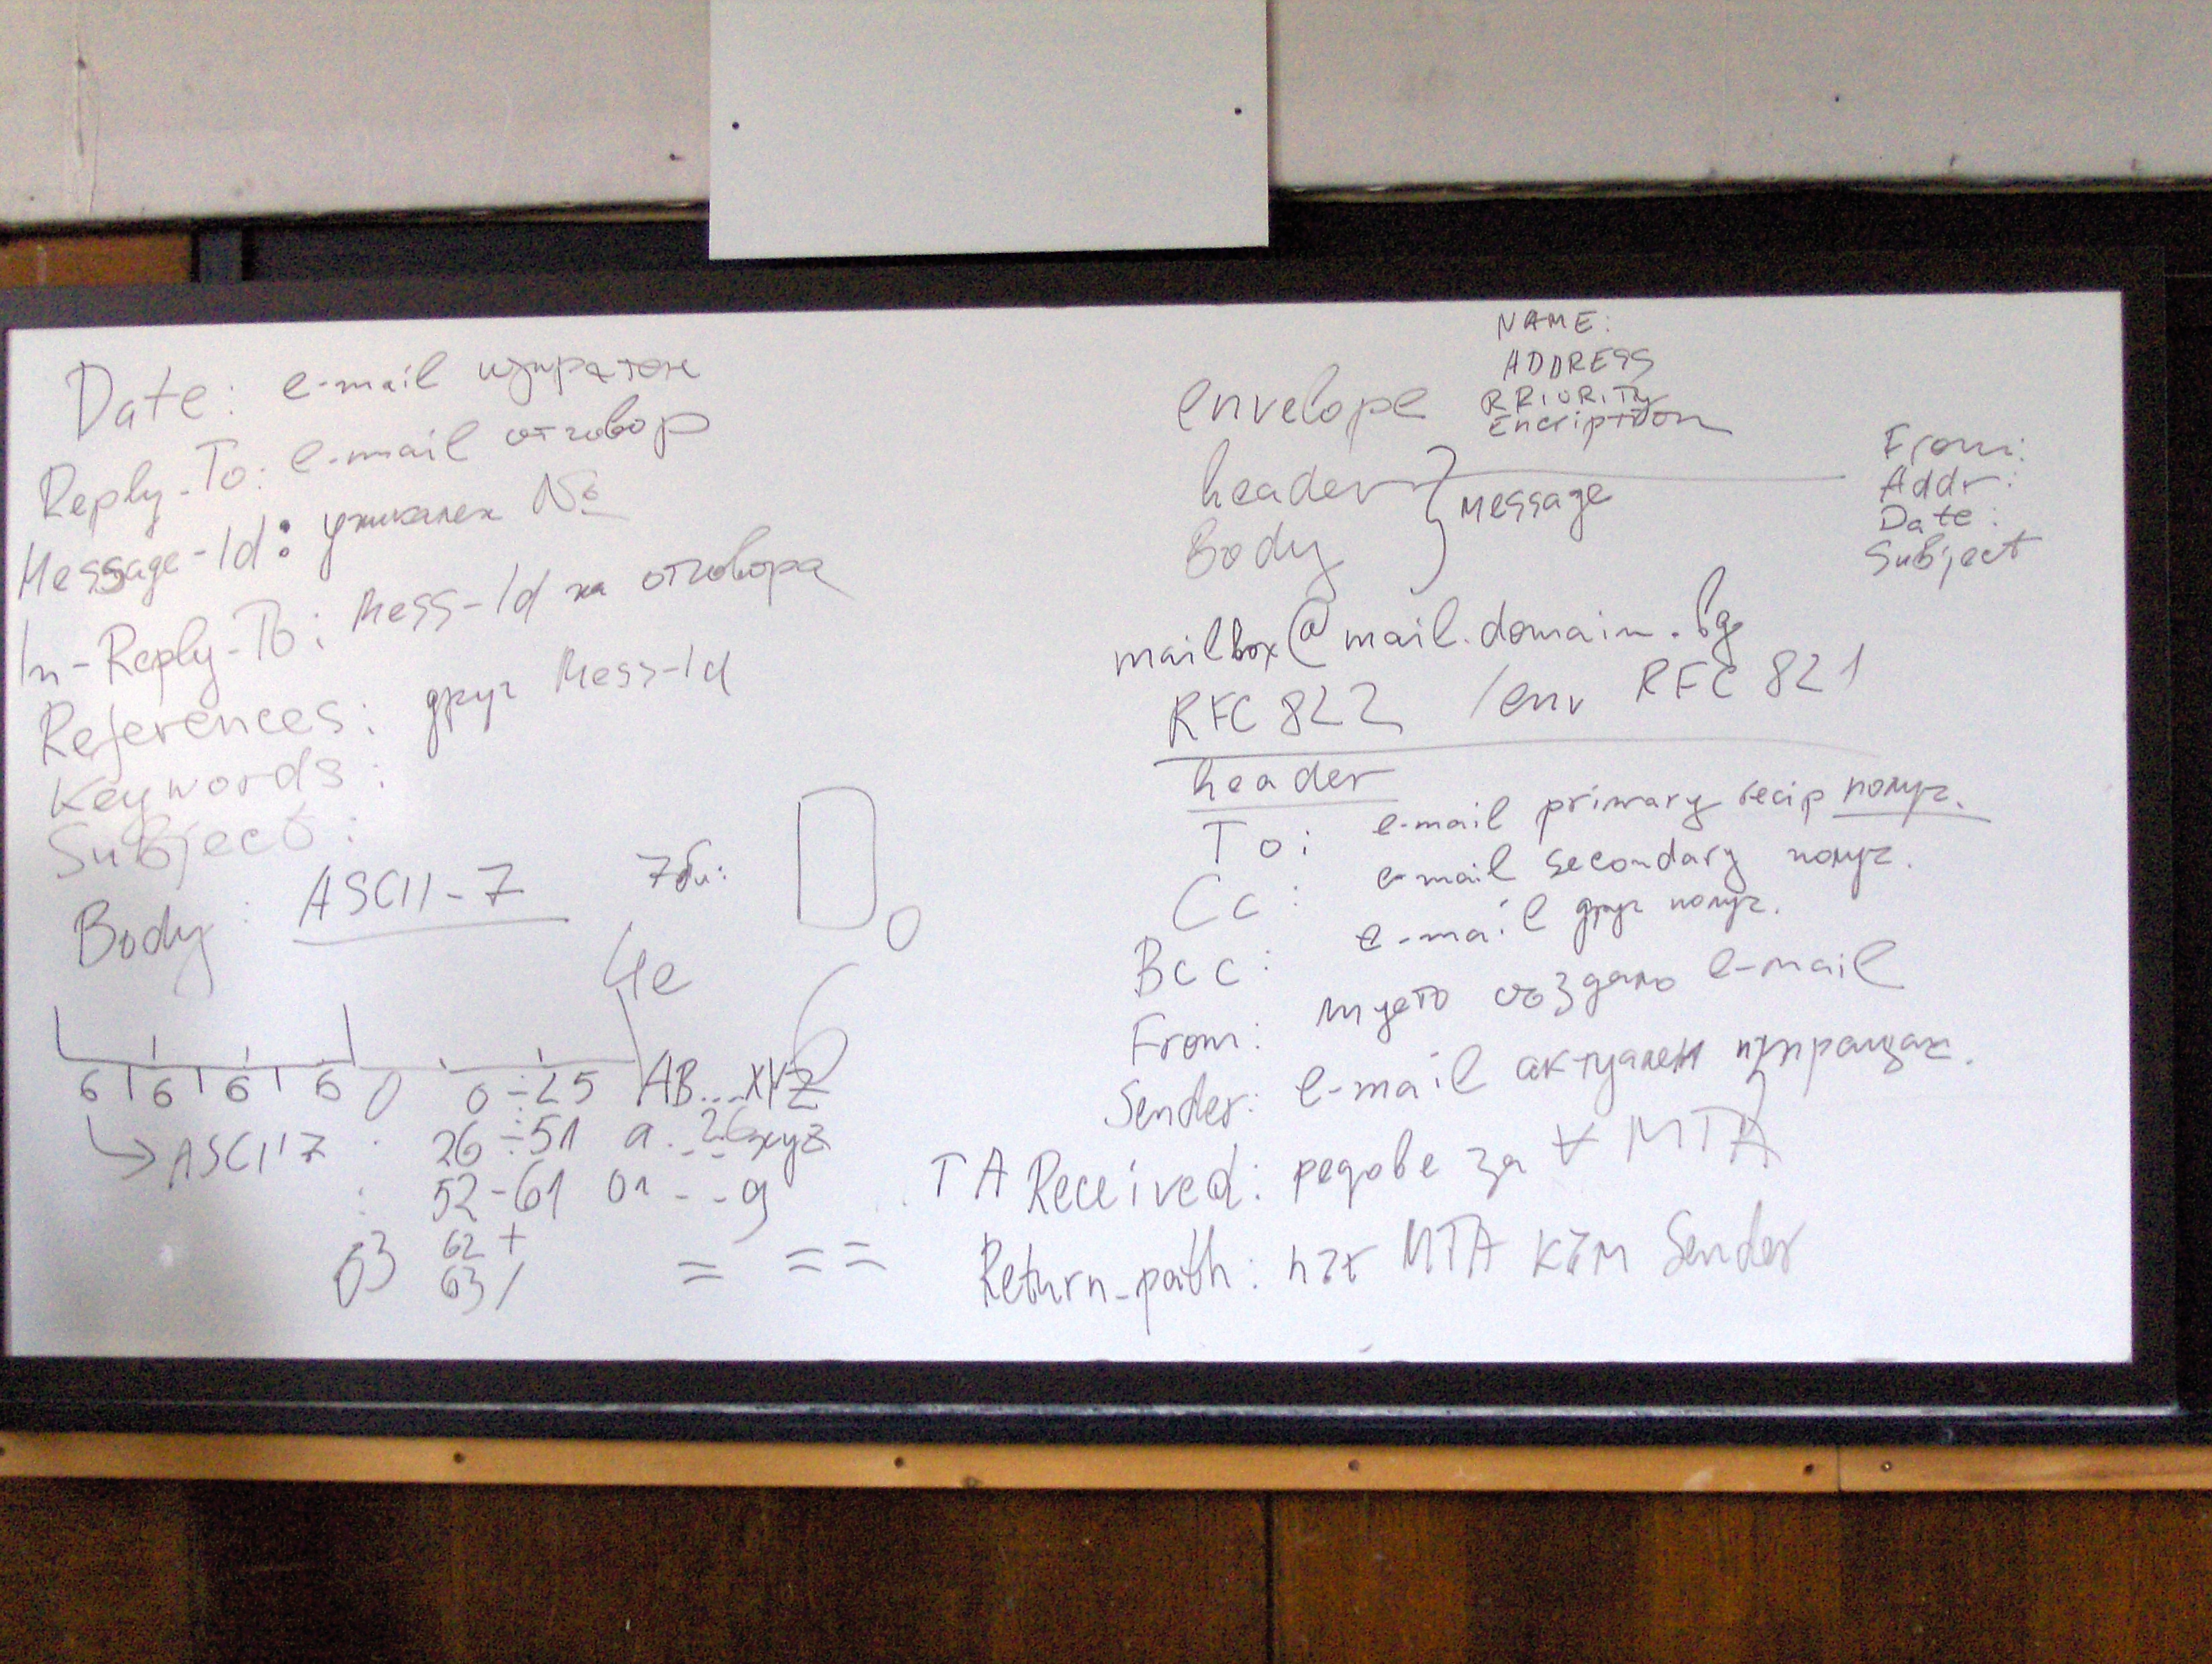 Date: e-mail изпратен
Reply-To: e-mail отговор
Message-Id: уникален №
In-Reply-To: Mess-Id на отговора
References: друг Mess-Id
Keywords:
Subject:
Body: ASCII-7 7би:
0
4e
6 6 6 6
0÷25 AB...XYZ
ASCII 7 26÷51 a...xyz
26
52-61 01--9
62 +
63 63 /
= ==
NAME:
ADDRESS
PRIORITY
Encription
envelope
header
Message
Body
From:
Addr:
Date:
Subject
mailbox@mail.domain.bg
RFC 822 /env RFC 821
header
To: e-mail primary recip получ.
Cc: e-mail secondary получ.
Bcc: e-mail друг получ.
From: лицето създало e-mail
Sender: e-mail актуален изпращач.
TA Received: редове за ∀ MTA
Return-path: път MTA към Sender